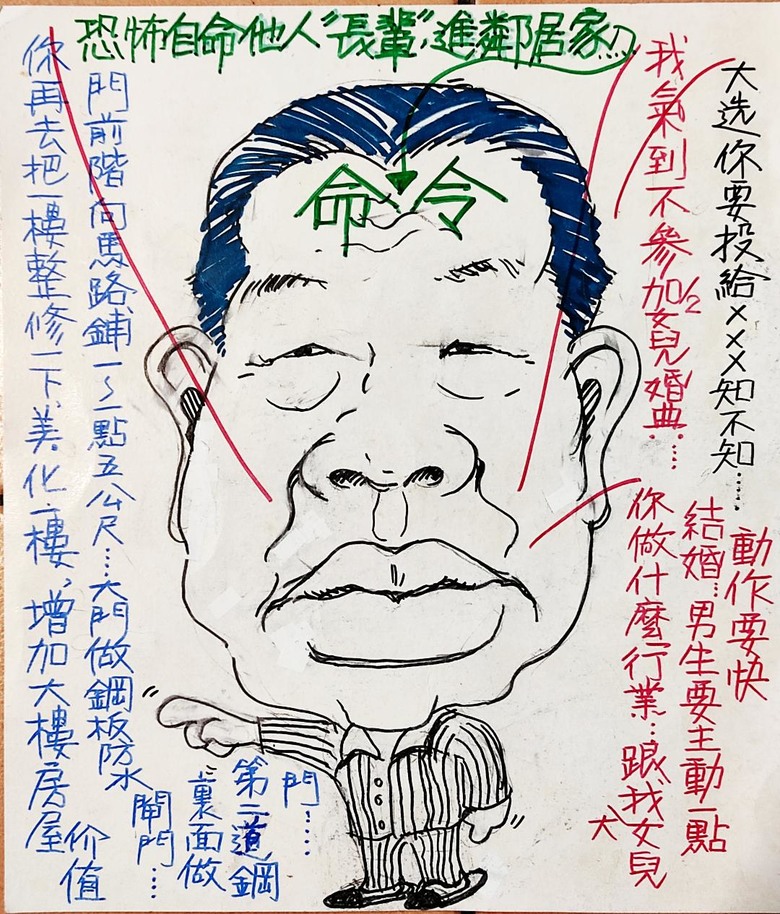 恐怖自命他人"長輩",進鄰居家八
命令
大选你要投給×××知不知……
我氣到不參加女兒婚典……
1/2
動作要快
結婚…男生要主動一點
你做什麼行業…跟我女兒
大
門前階向馬路鋪一~一點五公尺……大門做鋼板防水
閘門……
裏面做
第二道鋼
門……
你再去把一樓整修一下、美化一樓,增加大樓房屋
价值